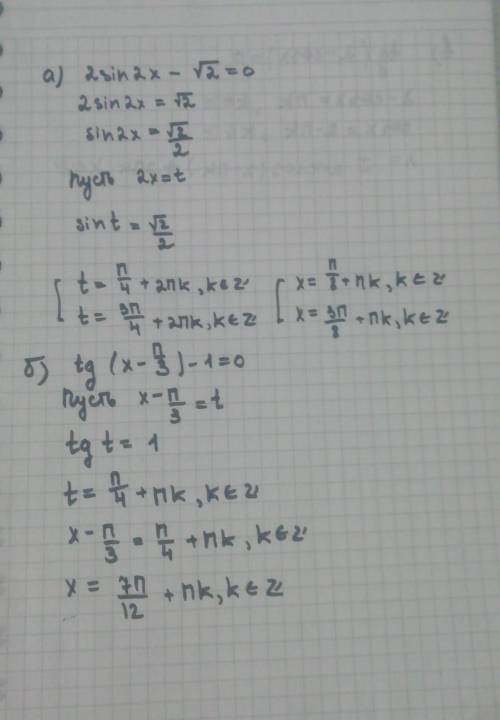 а) 2sin2x - √2 = 0
2sin2x = √2
sin2x = √2/2
Пусть 2x = t
sin t = √2/2
[ t = π/4 + 2πk, k ∈ Z [ x = π/8 + πk, k ∈ Z
[ t = 3π/4 + 2πk, k ∈ Z [ x = 3π/8 + πk, k ∈ Z
б) tg (x - π/3) - 1 = 0
Пусть x - π/3 = t
tg t = 1
t = π/4 + πk, k ∈ Z
x - π/3 = π/4 + πk, k ∈ Z
x = 7π/12 + πk, k ∈ Z